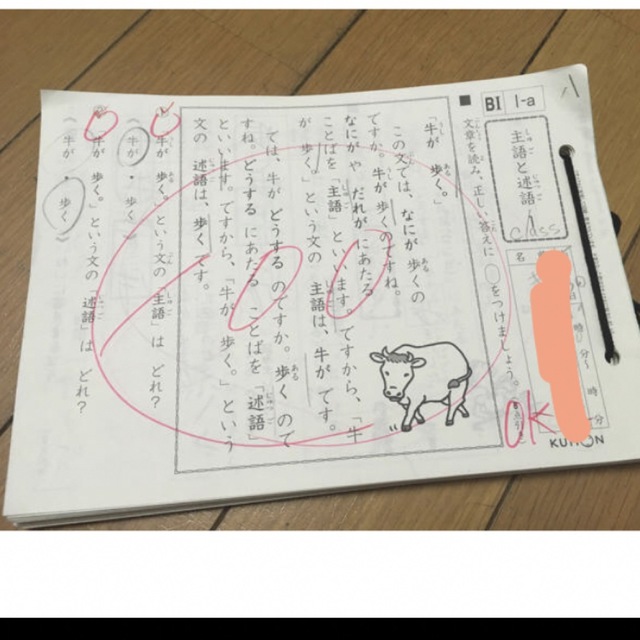 BⅠ 1-a
主語と述語
class
名
時 分〜
時 分
KUMON
OK
■ 文章を読み、正しい答えに○をつけましょう。
「牛が 歩く。」
この文では、なにが 歩くの
ですか。牛が 歩くのですね。
なにがや だれが にあたる
ことばを「主語」といいます。ですから、「牛
が 歩く。」という文の 主語は、牛が です。
では、牛が どうする のですか。歩く ので
すね。どうする にあたる ことばを「述語」
といいます。ですから、「牛が 歩く。」という
文の 述語は、歩く です。
牛が 歩く。という文の「主語」は どれ?
(牛が ・ 歩く)
牛が 歩く。という文の「述語」は どれ?
(牛が ・ 歩く)
100